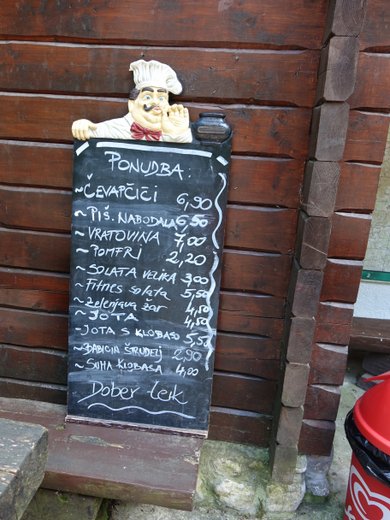 PONUDBA:
~ČEVAPČIČI 6,90
~PIŠ. NABODALA 6,50
~VRATOVINA 7,00
~POMFRI 2,20
~SOLATA VELIKA 3,00
~Fitnes solata 5,50
~Zelenjava žar 4,50
~JOTA 4,50
~JOTA S KLOBASO 5,50
~JABOLČN ŠTRUDELJ 2,90
~SUHA KLOBASA 4,00
Dober tek